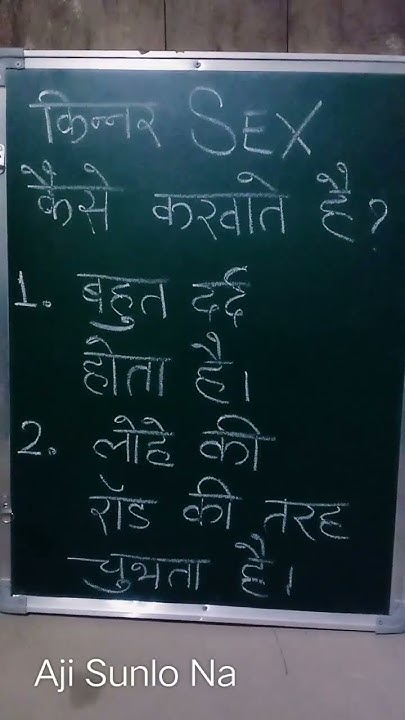 किन्नर SEX
कैसे करवाते है?
1. बहुत दर्द
होता है।
2. लोहे की
रॉड की तरह
चुभता है।
Aji Sunlo Na